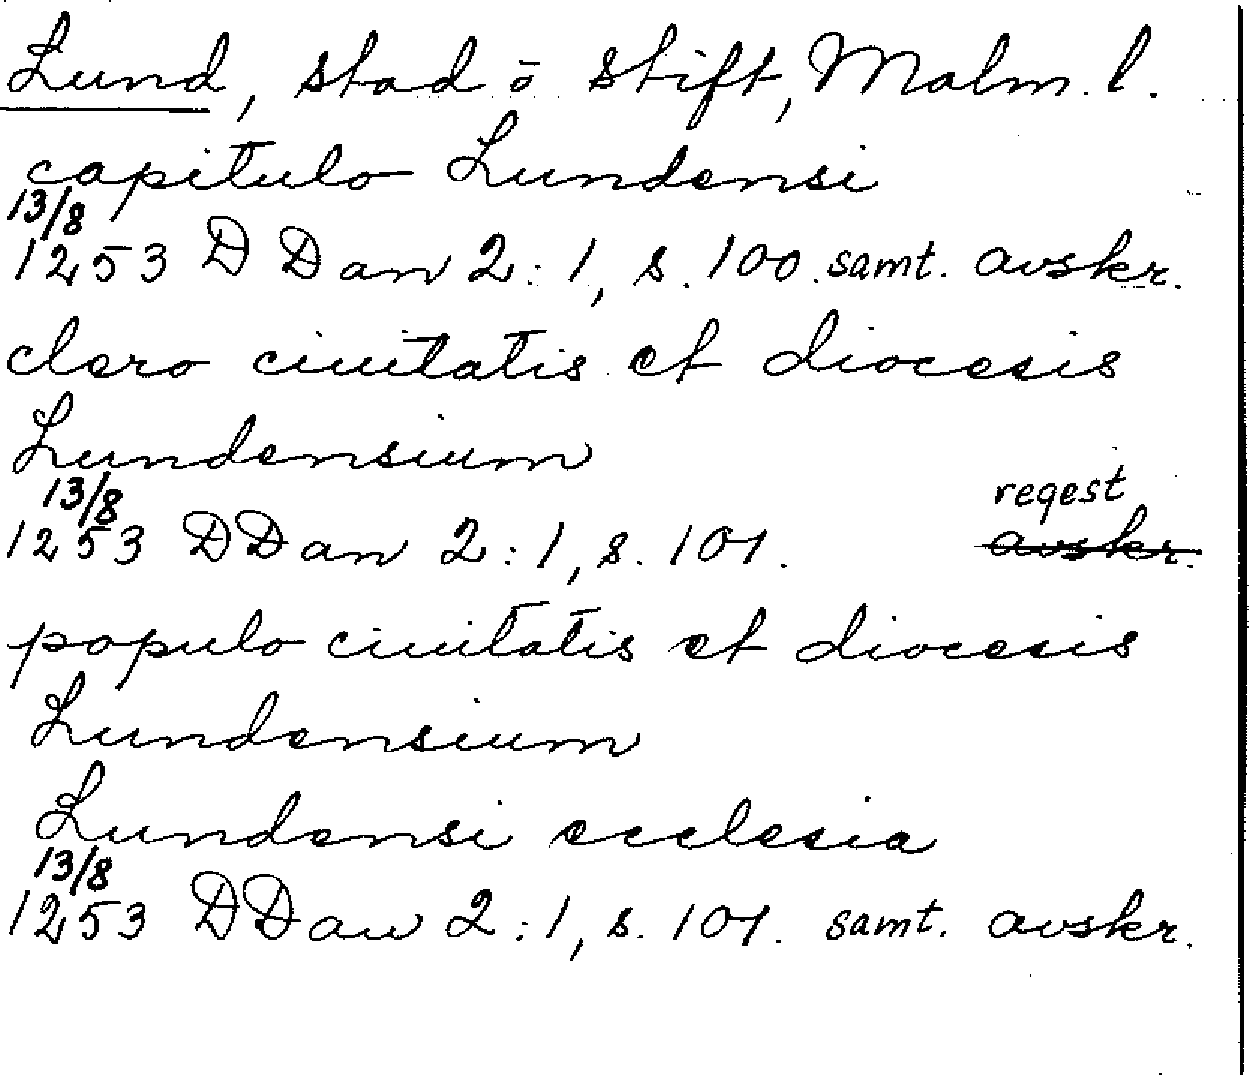 Lund, stad ō stift, Malm. l.
capitulo Lundensi
13/8
1253 DDan 2:1, s. 100. samt. avskr.
clero ciuitatis et diocesis
Lundensium
13/8 regest
1253 DDan 2:1, s. 101. avskr.
populo ciuitatis et diocesis
Lundensium
Lundensi ecclesia
13/8
1253 DDan 2:1, s. 101. samt. avskr.